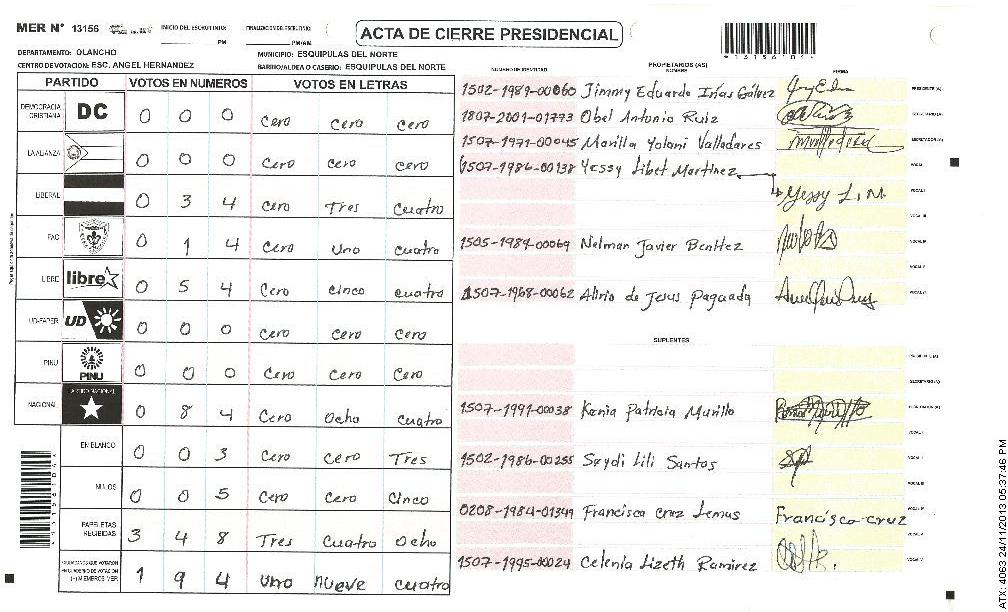 MER N° 13156
INICIO DEL ESCRUTINIO:
PM
FINALIZACION DEL ESCRUTINIO:
PM/AM
ACTA DE CIERRE PRESIDENCIAL
*13156104*
DEPARTAMENTO: OLANCHO
MUNICIPIO: ESQUIPULAS DEL NORTE
CENTRO DE VOTACION: ESC. ANGEL HERNANDEZ
BARRIO/ALDEA O CASERIO: ESQUIPULAS DEL NORTE
PARTIDO VOTOS EN NUMEROS VOTOS EN LETRAS
DEMOCRACIA CRISTIANA DC 0 0 0 Cero Cero Cero
LA ALIANZA 0 0 0 Cero Cero Cero
LIBERAL 0 3 4 Cero Tres Cuatro
PAC 0 1 4 Cero Uno Cuatro
LIBRE libre 0 5 4 Cero Cinco Cuatro
UD-FAPER UD 0 0 0 Cero Cero Cero
PINU PINU 0 0 0 Cero Cero Cero
NACIONAL PARTIDO NACIONAL 0 8 4 Cero Ocho Cuatro
EN BLANCO 0 0 3 Cero Cero Tres
NULOS 0 0 5 Cero Cero Cinco
PAPELETAS RECIBIDAS 3 4 8 Tres Cuatro Ocho
CIUDADANOS QUE VOTARON EN CUADERNO DE VOTACION (+) MIEMBROS MER 1 9 4 Uno nueve cuatro
PROPIETARIOS (AS)
NUMERO DE IDENTIDAD NOMBRE FIRMA
1502-1989-00060 Jimmy Eduardo Irias Galvez PRESIDENTE (A)
1807-2001-01773 Obel Antonio Ruiz SECRETARIO (A)
1507-1971-00045 Marilla Yolani Valladares ESCRUTADOR (A)
1507-1986-00138 Yessy Libet Martinez VOCAL I
Yessy L. M VOCAL II
VOCAL III
1505-1984-00069 Nelman Javier Benitez VOCAL IV
VOCAL V
1507-1968-00062 Alirio de Jesus Paguada VOCAL VI
SUPLENTES
PRESIDENTE (A)
SECRETARIO (A)
1507-1991-00038 Kenia Patricia Murillo ESCRUTADOR (A)
VOCAL I
1502-1986-00255 Saydi Lili Santos VOCAL II
VOCAL III
0208-1984-01349 Francisca Cruz Lemus Francisca cruz VOCAL IV
VOCAL V
1507-1995-00024 Celenia Lizeth Ramirez VOCAL VI
ATX: 4063 24/11/2013 05:37:46 PM